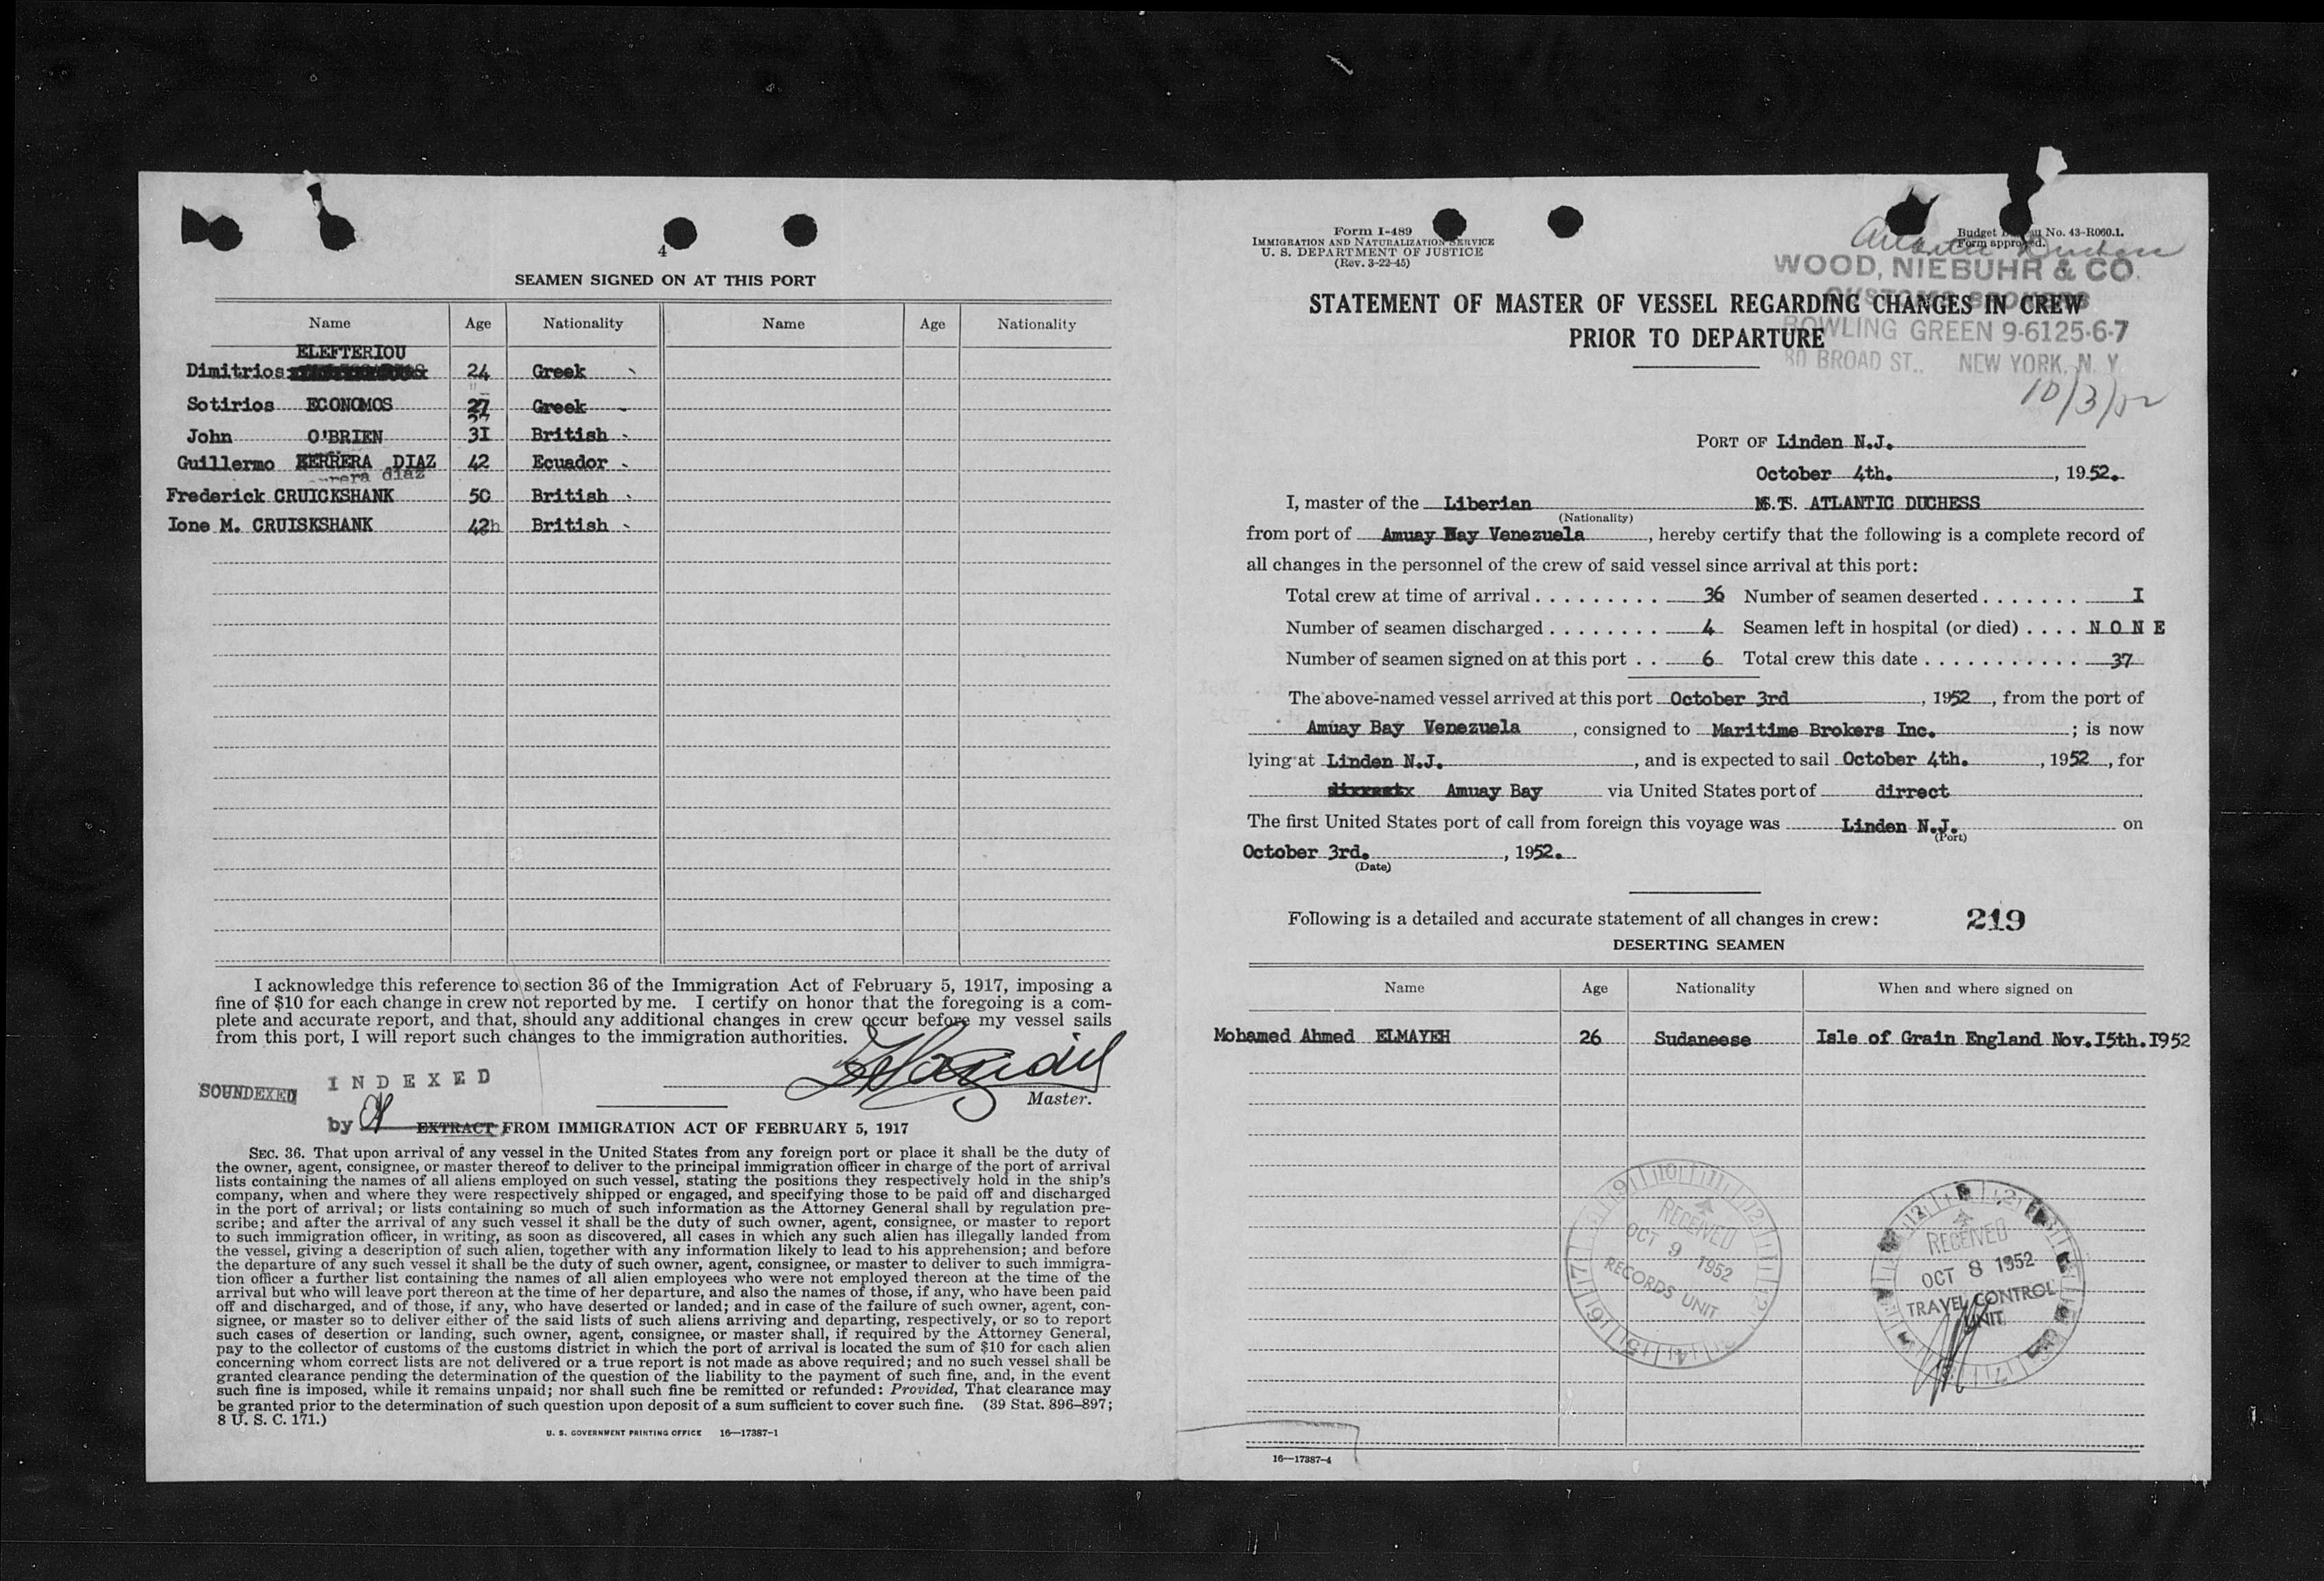 4
SEAMEN SIGNED ON AT THIS PORT
Name Age Nationality Name Age Nationality
ELEFTERIOU
Dimitrios 24 Greek
Sotirios ECONOMOS 27 Greek
27
John O'BRIEN 31 British
Guillermo HERRERA DIAZ 42 Ecuador
diaz
Frederick CRUICKSHANK 50 British
Ione M. CRUISKSHANK 42h British
I acknowledge this reference to section 36 of the Immigration Act of February 5, 1917, imposing a
fine of $10 for each change in crew not reported by me. I certify on honor that the foregoing is a com-
plete and accurate report, and that, should any additional changes in crew occur before my vessel sails
from this port, I will report such changes to the immigration authorities.
SOUNDEXED
INDEXED
Master.
by
EXTRACT FROM IMMIGRATION ACT OF FEBRUARY 5, 1917
SEC. 36. That upon arrival of any vessel in the United States from any foreign port or place it shall be the duty of
the owner, agent, consignee, or master thereof to deliver to the principal immigration officer in charge of the port of arrival
lists containing the names of all aliens employed on such vessel, stating the positions they respectively hold in the ship's
company, when and where they were respectively shipped or engaged, and specifying those to be paid off and discharged
in the port of arrival; or lists containing so much of such information as the Attorney General shall by regulation pre-
scribe; and after the arrival of any such vessel it shall be the duty of such owner, agent, consignee, or master to report
to such immigration officer, in writing, as soon as discovered, all cases in which any such alien has illegally landed from
the vessel, giving a description of such alien, together with any information likely to lead to his apprehension; and before
the departure of any such vessel it shall be the duty of such owner, agent, consignee, or master to deliver to such immigra-
tion officer a further list containing the names of all alien employees who were not employed thereon at the time of the
arrival but who will leave port thereon at the time of her departure, and also the names of those, if any, who have been paid
off and discharged, and of those, if any, who have deserted or landed; and in case of the failure of such owner, agent, con-
signee, or master so to deliver either of the said lists of such aliens arriving and departing, respectively, or so to report
such cases of desertion or landing, such owner, agent, consignee, or master shall, if required by the Attorney General,
pay to the collector of customs of the customs district in which the port of arrival is located the sum of $10 for each alien
concerning whom correct lists are not delivered or a true report is not made as above required; and no such vessel shall be
granted clearance pending the determination of the question of the liability to the payment of such fine, and, in the event
such fine is imposed, while it remains unpaid; nor shall such fine be remitted or refunded: Provided, That clearance may
be granted prior to the determination of such question upon deposit of a sum sufficient to cover such fine. (39 Stat. 896–897;
8 U. S. C. 171.)
U. S. GOVERNMENT PRINTING OFFICE 16—17387-1
Form I-489
IMMIGRATION AND NATURALIZATION SERVICE
U. S. DEPARTMENT OF JUSTICE
(Rev. 3-22-45)
Budget Bureau No. 43-R060.1.
Form approved.
Atlantic Duchess
WOOD, NIEBUHR & CO.
CUSTOMS BROKERS
BOWLING GREEN 9-6125-6-7
80 BROAD ST., NEW YORK, N. Y.
STATEMENT OF MASTER OF VESSEL REGARDING CHANGES IN CREW
PRIOR TO DEPARTURE
10/3/52
PORT OF Linden N.J.
October 4th., 1952.
I, master of the Liberian M.S. ATLANTIC DUCHESS
(Nationality)
from port of Amuay Bay Venezuela, hereby certify that the following is a complete record of
all changes in the personnel of the crew of said vessel since arrival at this port:
Total crew at time of arrival . . . . . . . . . . 36 Number of seamen deserted . . . . . . . I
Number of seamen discharged . . . . . . . . 4 Seamen left in hospital (or died) . . . . N O N E
Number of seamen signed on at this port . . 6 Total crew this date . . . . . . . . . . . . 37
The above-named vessel arrived at this port October 3rd, 1952, from the port of
Amuay Bay Venezuela, consigned to Maritime Brokers Inc.; is now
lying at Linden N.J., and is expected to sail October 4th., 1952, for
Amuay Bay via United States port of dirrect
The first United States port of call from foreign this voyage was Linden N.J. on
(Port)
October 3rd., 1952.
(Date)
Following is a detailed and accurate statement of all changes in crew: 219
DESERTING SEAMEN
Name Age Nationality When and where signed on
Mohamed Ahmed ELMAYEH 26 Sudaneese Isle of Grain England Nov.I5th.I952
RECEIVED
OCT 9 1952
RECORDS UNIT
RECEIVED
OCT 8 1952
TRAVEL CONTROL
UNIT
16—17387-4